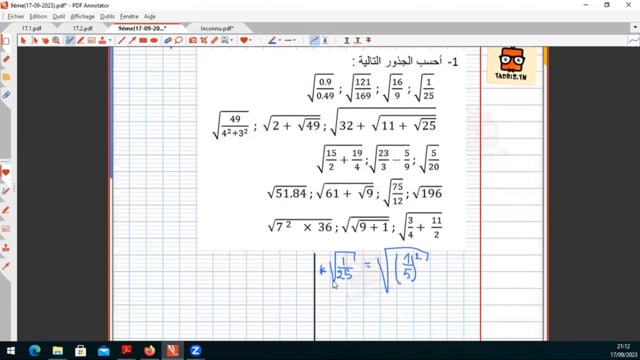 9ème(17-09-2023).pdf* - PDF Annotator
Fichier Edition Outil Affichage Outils Fenêtre Aide
17.1.pdf 17.2.pdf 9ème(17-09-20...* Inconnu.pdf*
1- أحسب الجذور التالية :
√(0.9/0.49) ; √(121/169) ; √(16/9) ; √(1/25)
√(49/(4²+3²)) ; √(2 + √49) ; √(32 + √(11 + √25))
√(15/2 + 19/4) ; √(23/3 − 5/9) ; √(5/20)
√51.84 ; √(61 + √9) ; √(75/12) ; √196
√(7² × 36) ; √(√(9 + 1)) ; √(3/4 + 11/2)
* √(1/25) = √((1/5)²)
TADRIS.TN
21:12
17/09/2023